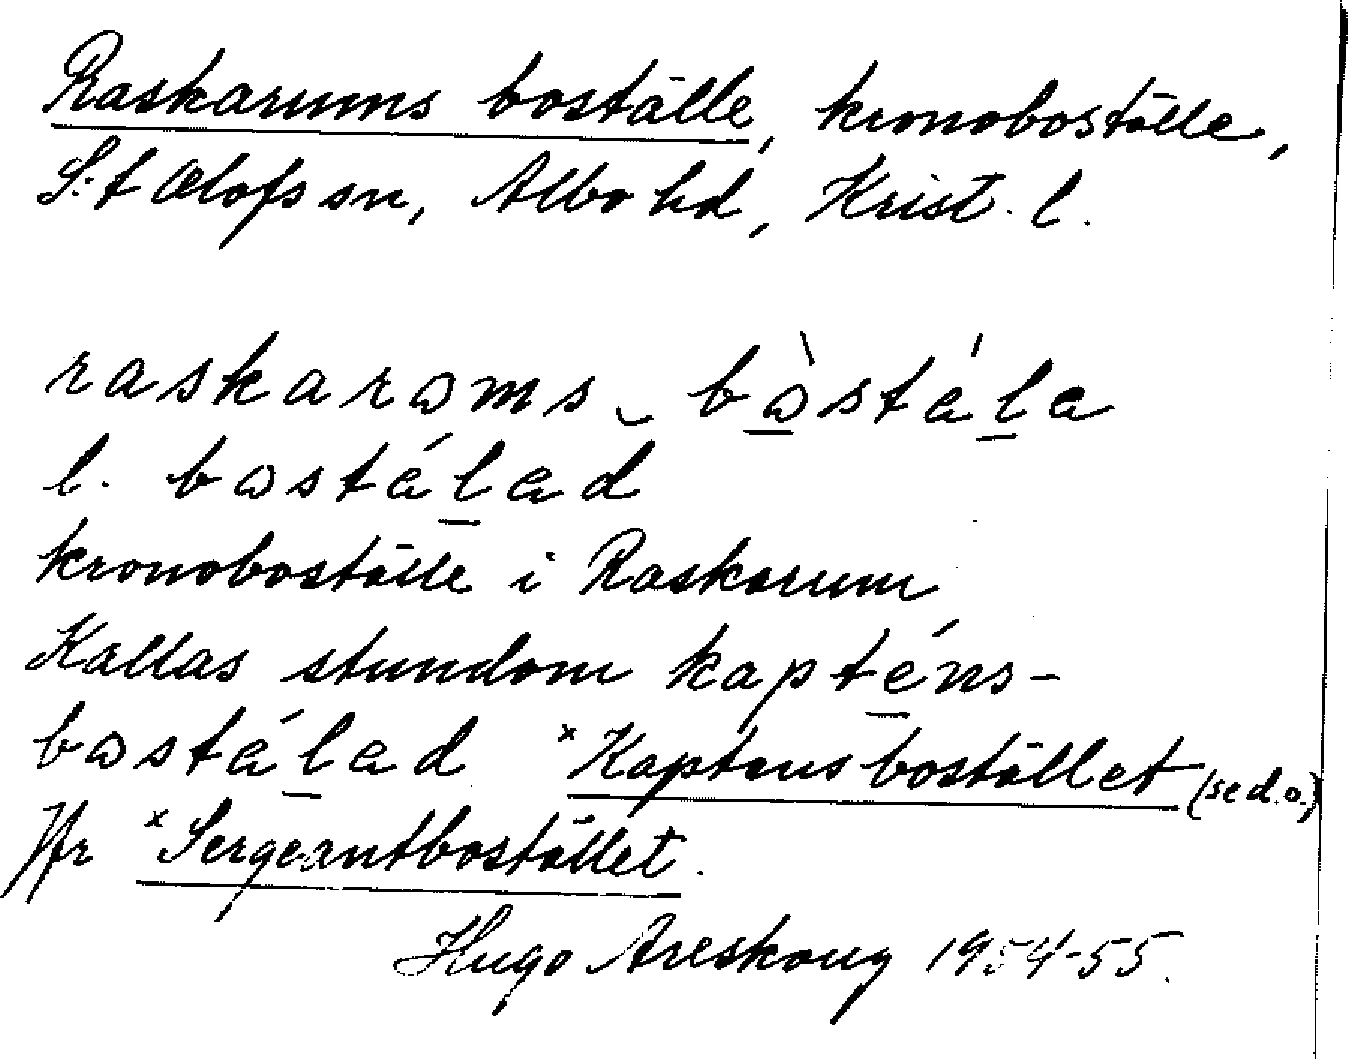 Raskarums boställe, kronoboställe,
S:t Olofs sn, Albo hd, Krist. l.
raskarɷms ‿ bɷ̀stála
l. bɷstálad
kronoboställe i Raskarum
Kallas stundom kapténs-
bɷstálad ˣKaptensbostället (se d. o.)
Jfr ˣSergeantbostället.
Hugo Areskoug 1954-55.